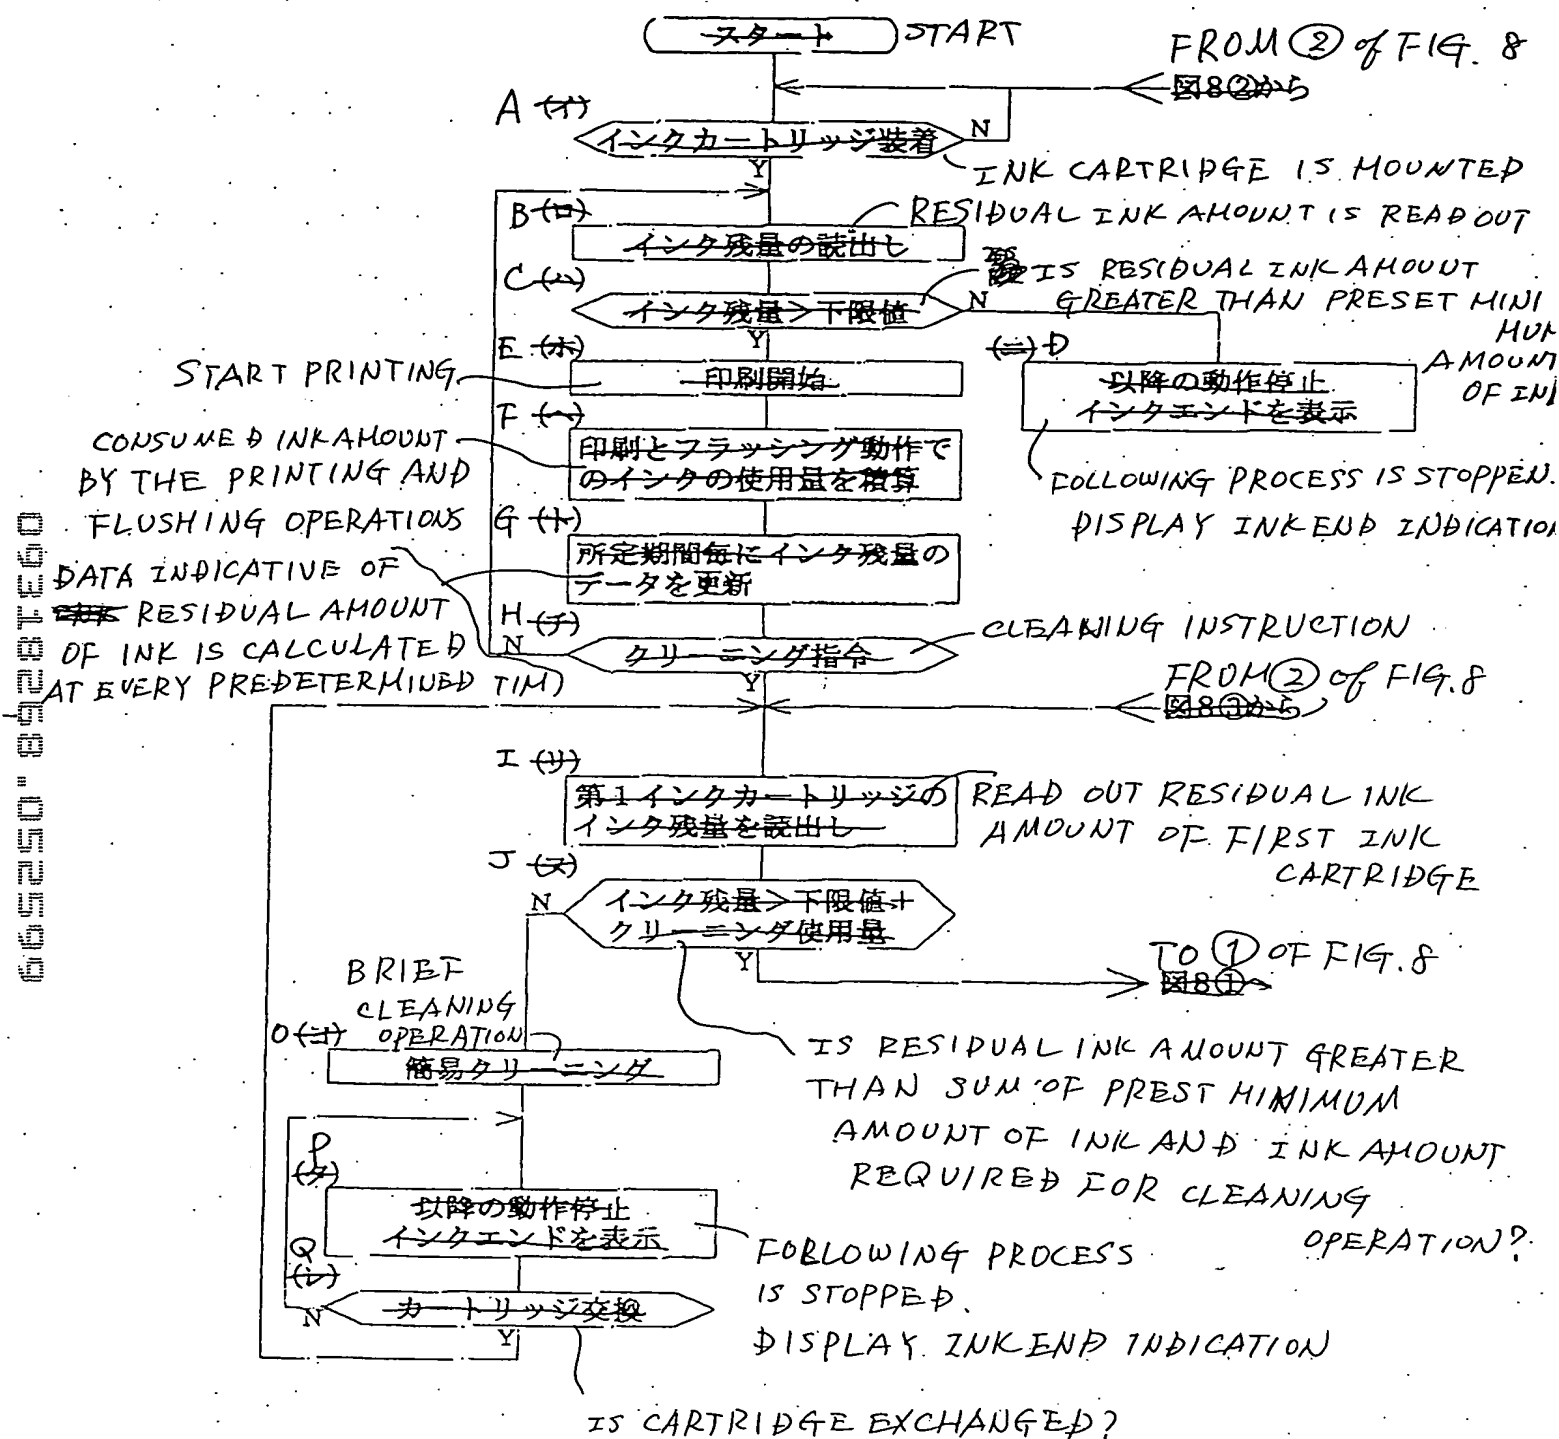 スタート START
FROM ② of FIG. 8
図8②から
A (イ)
インクカートリッジ装着
N
Y
INK CARTRIDGE IS MOUNTED
B (ロ)
RESIDUAL INK AMOUNT IS READ OUT
インク残量の読出し
C (ハ)
インク残量>下限値
N
Y
IS RESIDUAL INK AMOUNT
GREATER THAN PRESET MINI
MUM
AMOUNT
OF INK
E (ホ)
START PRINTING
印刷開始
(ニ) D
以降の動作停止
インクエンドを表示
FOLLOWING PROCESS IS STOPPEN.
DISPLAY INK END INDICATION
F (ヘ)
CONSUMED INK AMOUNT
BY THE PRINTING AND
FLUSHING OPERATIONS
印刷とフラッシング動作で
のインクの使用量を積算
G (ト)
所定期間毎にインク残量の
データを更新
DATA INDICATIVE OF
RESIDUAL AMOUNT
OF INK IS CALCULATED
AT EVERY PREDETERMINED TIM)
H (チ)
N
クリーニング指令
Y
CLEANING INSTRUCTION
FROM ② of FIG. 8
図8③から
I (リ)
第1インクカートリッジの
インク残量を読出し
READ OUT RESIDUAL INK
AMOUNT OF FIRST INK
CARTRIDGE
J (ヌ)
N
インク残量>下限値+
クリーニング使用量
Y
TO ① OF FIG. 8
図8①へ
IS RESIDUAL INK AMOUNT GREATER
THAN SUM OF PREST MINIMUM
AMOUNT OF INK AND INK AMOUNT
REQUIRED FOR CLEANING
OPERATION?
BRIEF
CLEANING
OPERATION
O (ヨ)
簡易クリーニング
P
(タ)
以降の動作停止
インクエンドを表示
FOLLOWING PROCESS
IS STOPPED.
DISPLAY INK END INDICATION
Q
(レ)
N
カートリッジ交換
Y
IS CARTRIDGE EXCHANGED?
09318258.052599